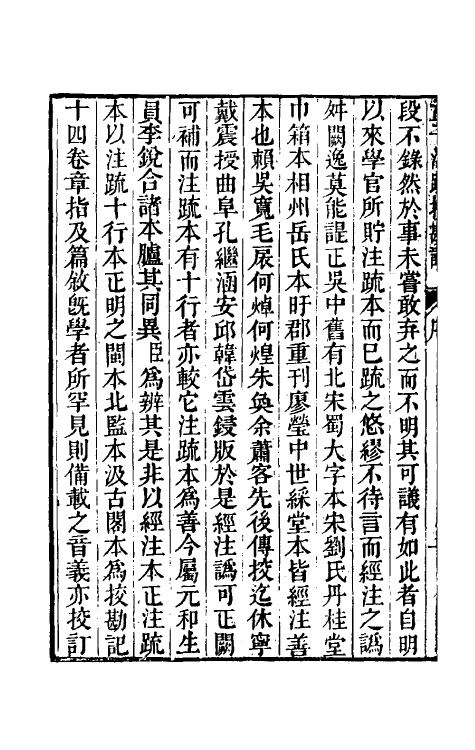 段不錄然於事未嘗敢弃之而不明其可議有如此者自明
以來學官所貯注疏本而巳疏之悠繆不待言而經注之譌
舛闕逸莫能諟正吳中舊有北宋蜀大字本宋劉氏丹桂堂
巾箱本相州岳氏本旴郡重刊廖瑩中世綵堂本皆經注善
本也賴吳寬毛扆何焯何煌朱奐余蕭客先後傳挍迄休寧
戴震授曲阜孔繼涵安邱韓岱雲鋟版於是經注譌可正闕
可補而注疏本有十行者亦較它注疏本為善今屬元和生
員李銳合諸本臚其同異臣為辨其是非以經注本正注疏
本以注疏十行本正明之閩本北監本汲古閣本為挍勘記
十四卷章指及篇敘旣學者所罕見則備載之音義亦挍訂